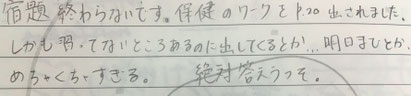 宿題終わらないです。保健のワークをP.20出されました。
しかも習ってないところあるのに出してくるとか…明日までとか、
めちゃくちゃすぎる。 絶対答えうつそ。